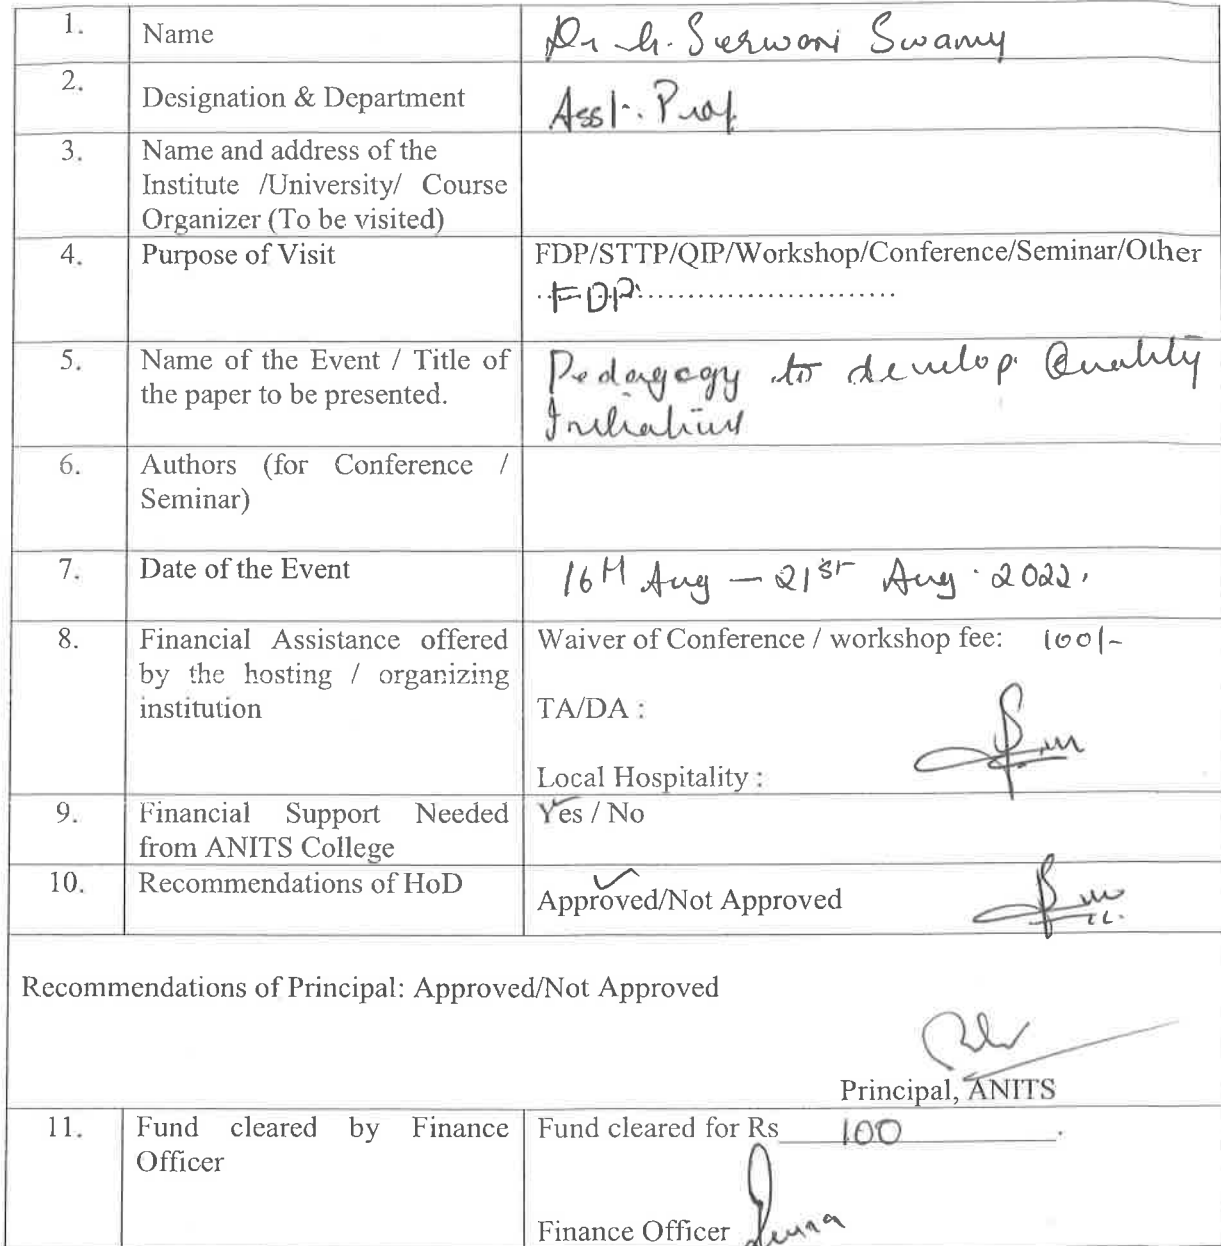 1. Name Dr G. Surwani Swamy
2. Designation & Department Asst. Prof
3. Name and address of the
Institute /University/ Course
Organizer (To be visited)
4. Purpose of Visit FDP/STTP/QIP/Workshop/Conference/Seminar/Other
FDP..........................
5. Name of the Event / Title of Pedagogy to develop Quality
the paper to be presented. Initiatives
6. Authors (for Conference /
Seminar)
7. Date of the Event 16th Aug – 21st Aug. 2022.
8. Financial Assistance offered Waiver of Conference / workshop fee: 100/-
by the hosting / organizing
institution TA/DA :
Local Hospitality :
9. Financial Support Needed Yes / No
from ANITS College
10. Recommendations of HoD Approved/Not Approved
Recommendations of Principal: Approved/Not Approved
Principal, ANITS
11. Fund cleared by Finance Fund cleared for Rs 100.
Officer
Finance Officer